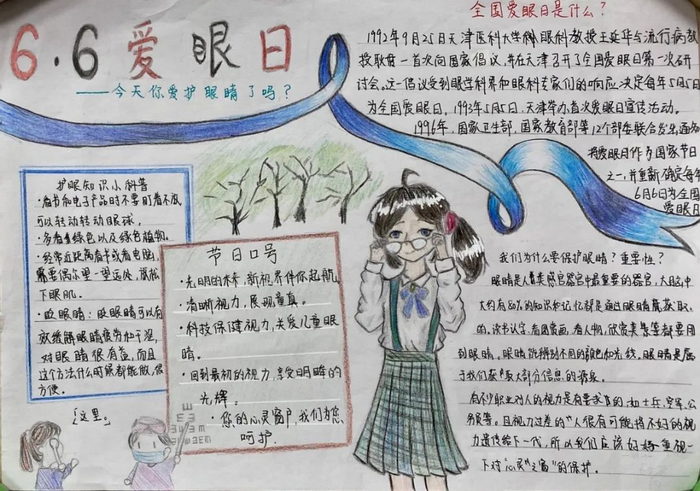 6·6爱眼日
——今天你爱护眼睛了吗？
全国爱眼日是什么？
1992年9月25日天津医科大学眼科教授王延华与流行病教
授耿贯一首次向国家倡议，并在天津召开了全国爱眼日第一次研
讨会。这一倡议受到眼学科界和眼科专家们的响应决定每年5月5日
为全国爱眼日，1993年5月5日，天津举办首次爱眼日宣传活动。
1996年，国家卫生部，国家教育部等12个部委联合发出通知
将爱眼日作为国家节日
之一，并重新确定每年
6月6日为全国
爱眼日
护眼知识小科普
·看书和电子产品时不要盯着不放
可以转动转动眼球。
·多看看绿色以及绿色植物。
·经常近距离看书或看电脑，
需要偶尔望一望远处，放松
下眼肌。
·眨眼睛：眨眼睛可以有
效缓解眼睛疲劳和干涩，
对眼睛很有益，而且
这个方法什么时候都能做，很
方便。
节日口号
·光明的未来，新视界伴你起航。
·清晰视力，展现童真。
·科技保健视力，关爱儿童眼
睛。
·回到最初的视力，享受明眸的
光辉。
·您的心灵窗户，我们为您
呵护.
「这里。
我们为什么要保护眼睛？重要性？
眼睛是人类感官器官中最重要的器官，大自然中
大约有80%的知识和记忆都是通过眼睛来获取
的，读书认字，看图赏画，看人物，欣赏美景等都要用
到眼睛。眼睛能辨别不同的颜色和光线，眼睛是属
于我们获取大部分信息的源泉。
有不少职业对人的视力是有要求的，如士兵，空军，公
务员等。且视力过差的人很有可能将不好的视
力遗传给下一代，所以我们应该好好重视一
下对"心灵之窗"的保护。